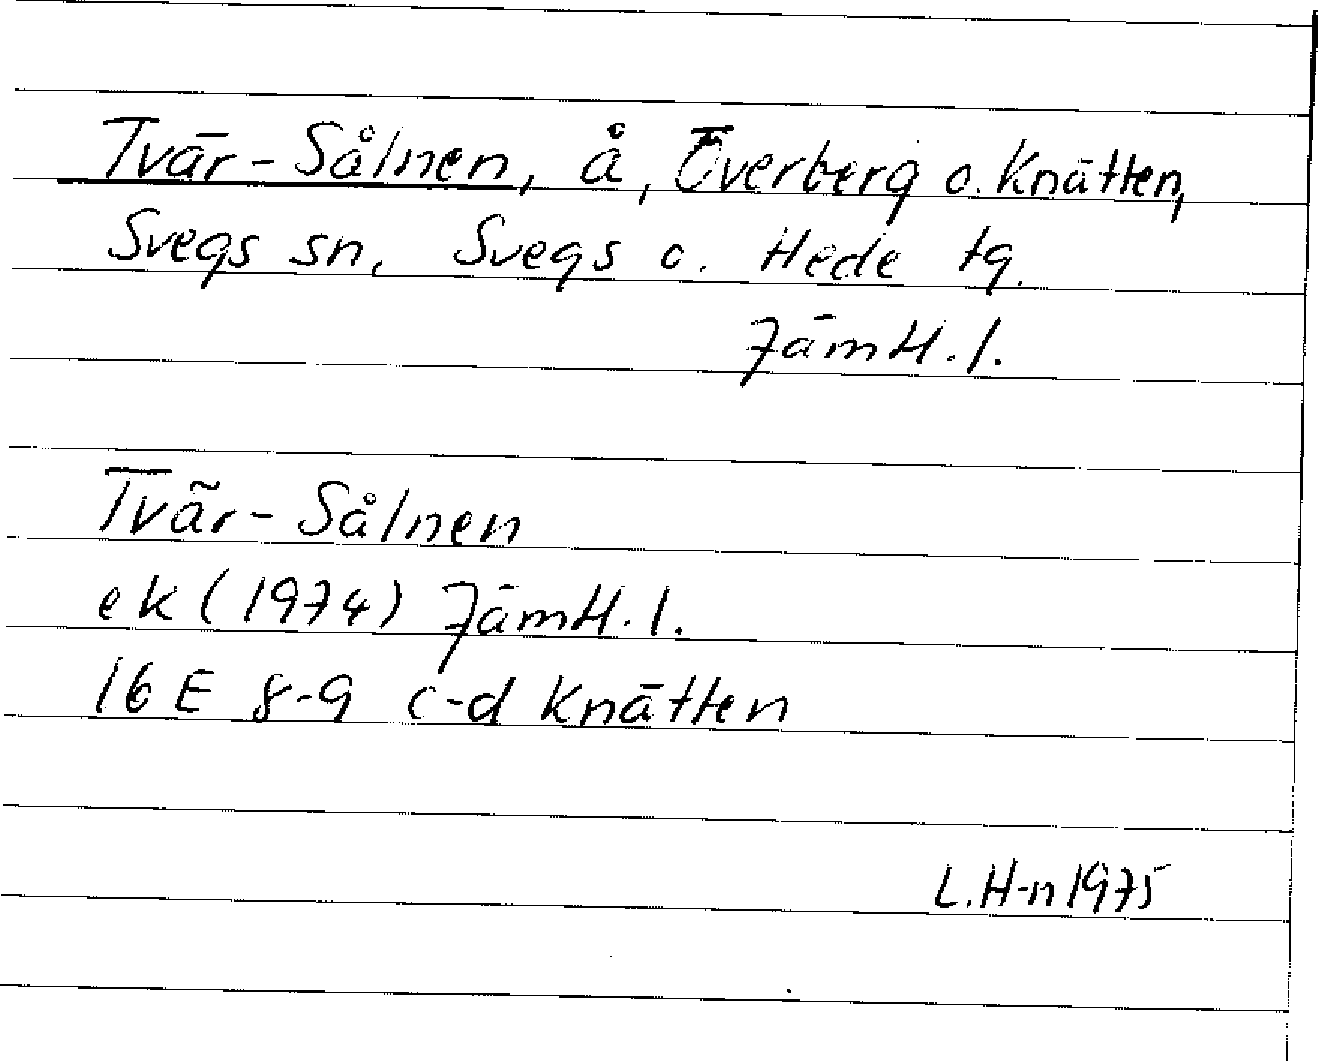 Tvär-Sålnen, å, Överberg o. Knätten,
Svegs sn, Svegs o. Hede tg.
Jämtl. l.
Tvär-Sålnen
ek (1974) Jämtl. l.
16 E 8-9 c-d Knätten
L.H-n 1975